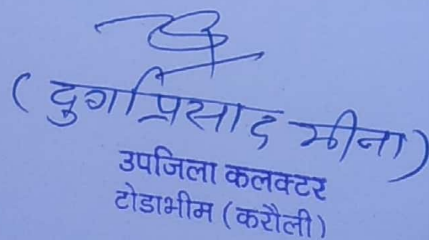 ( दुर्गाप्रसाद मीना)
उपजिला कलक्टर
टोडाभीम (करौली)